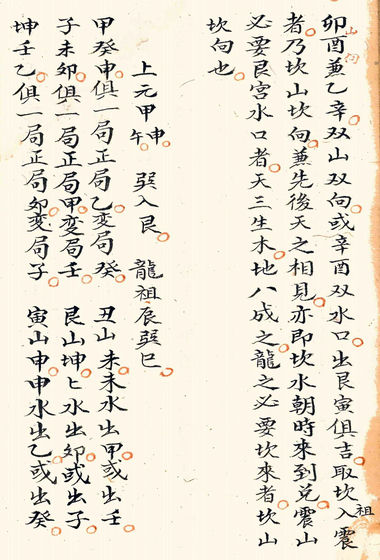 卯酉兼乙辛双山双向或辛酉双水口出艮寅俱吉取坎入震祖
者乃坎山坎向兼先後天之相見亦即坎水朝時來到兌震山
必要艮宮水口者天三生木地八成之龍之必要坎來者坎山
坎向也
上元甲申午 巽入艮 龍祖辰巽巳
甲癸申俱一局正局乙变局癸 丑山未未水出甲或出壬
子未卯俱一局正局甲変局壬 艮山坤ヒ水出卯或出子
坤壬乙俱一局正局卯変局子 寅山申申水出乙或出癸